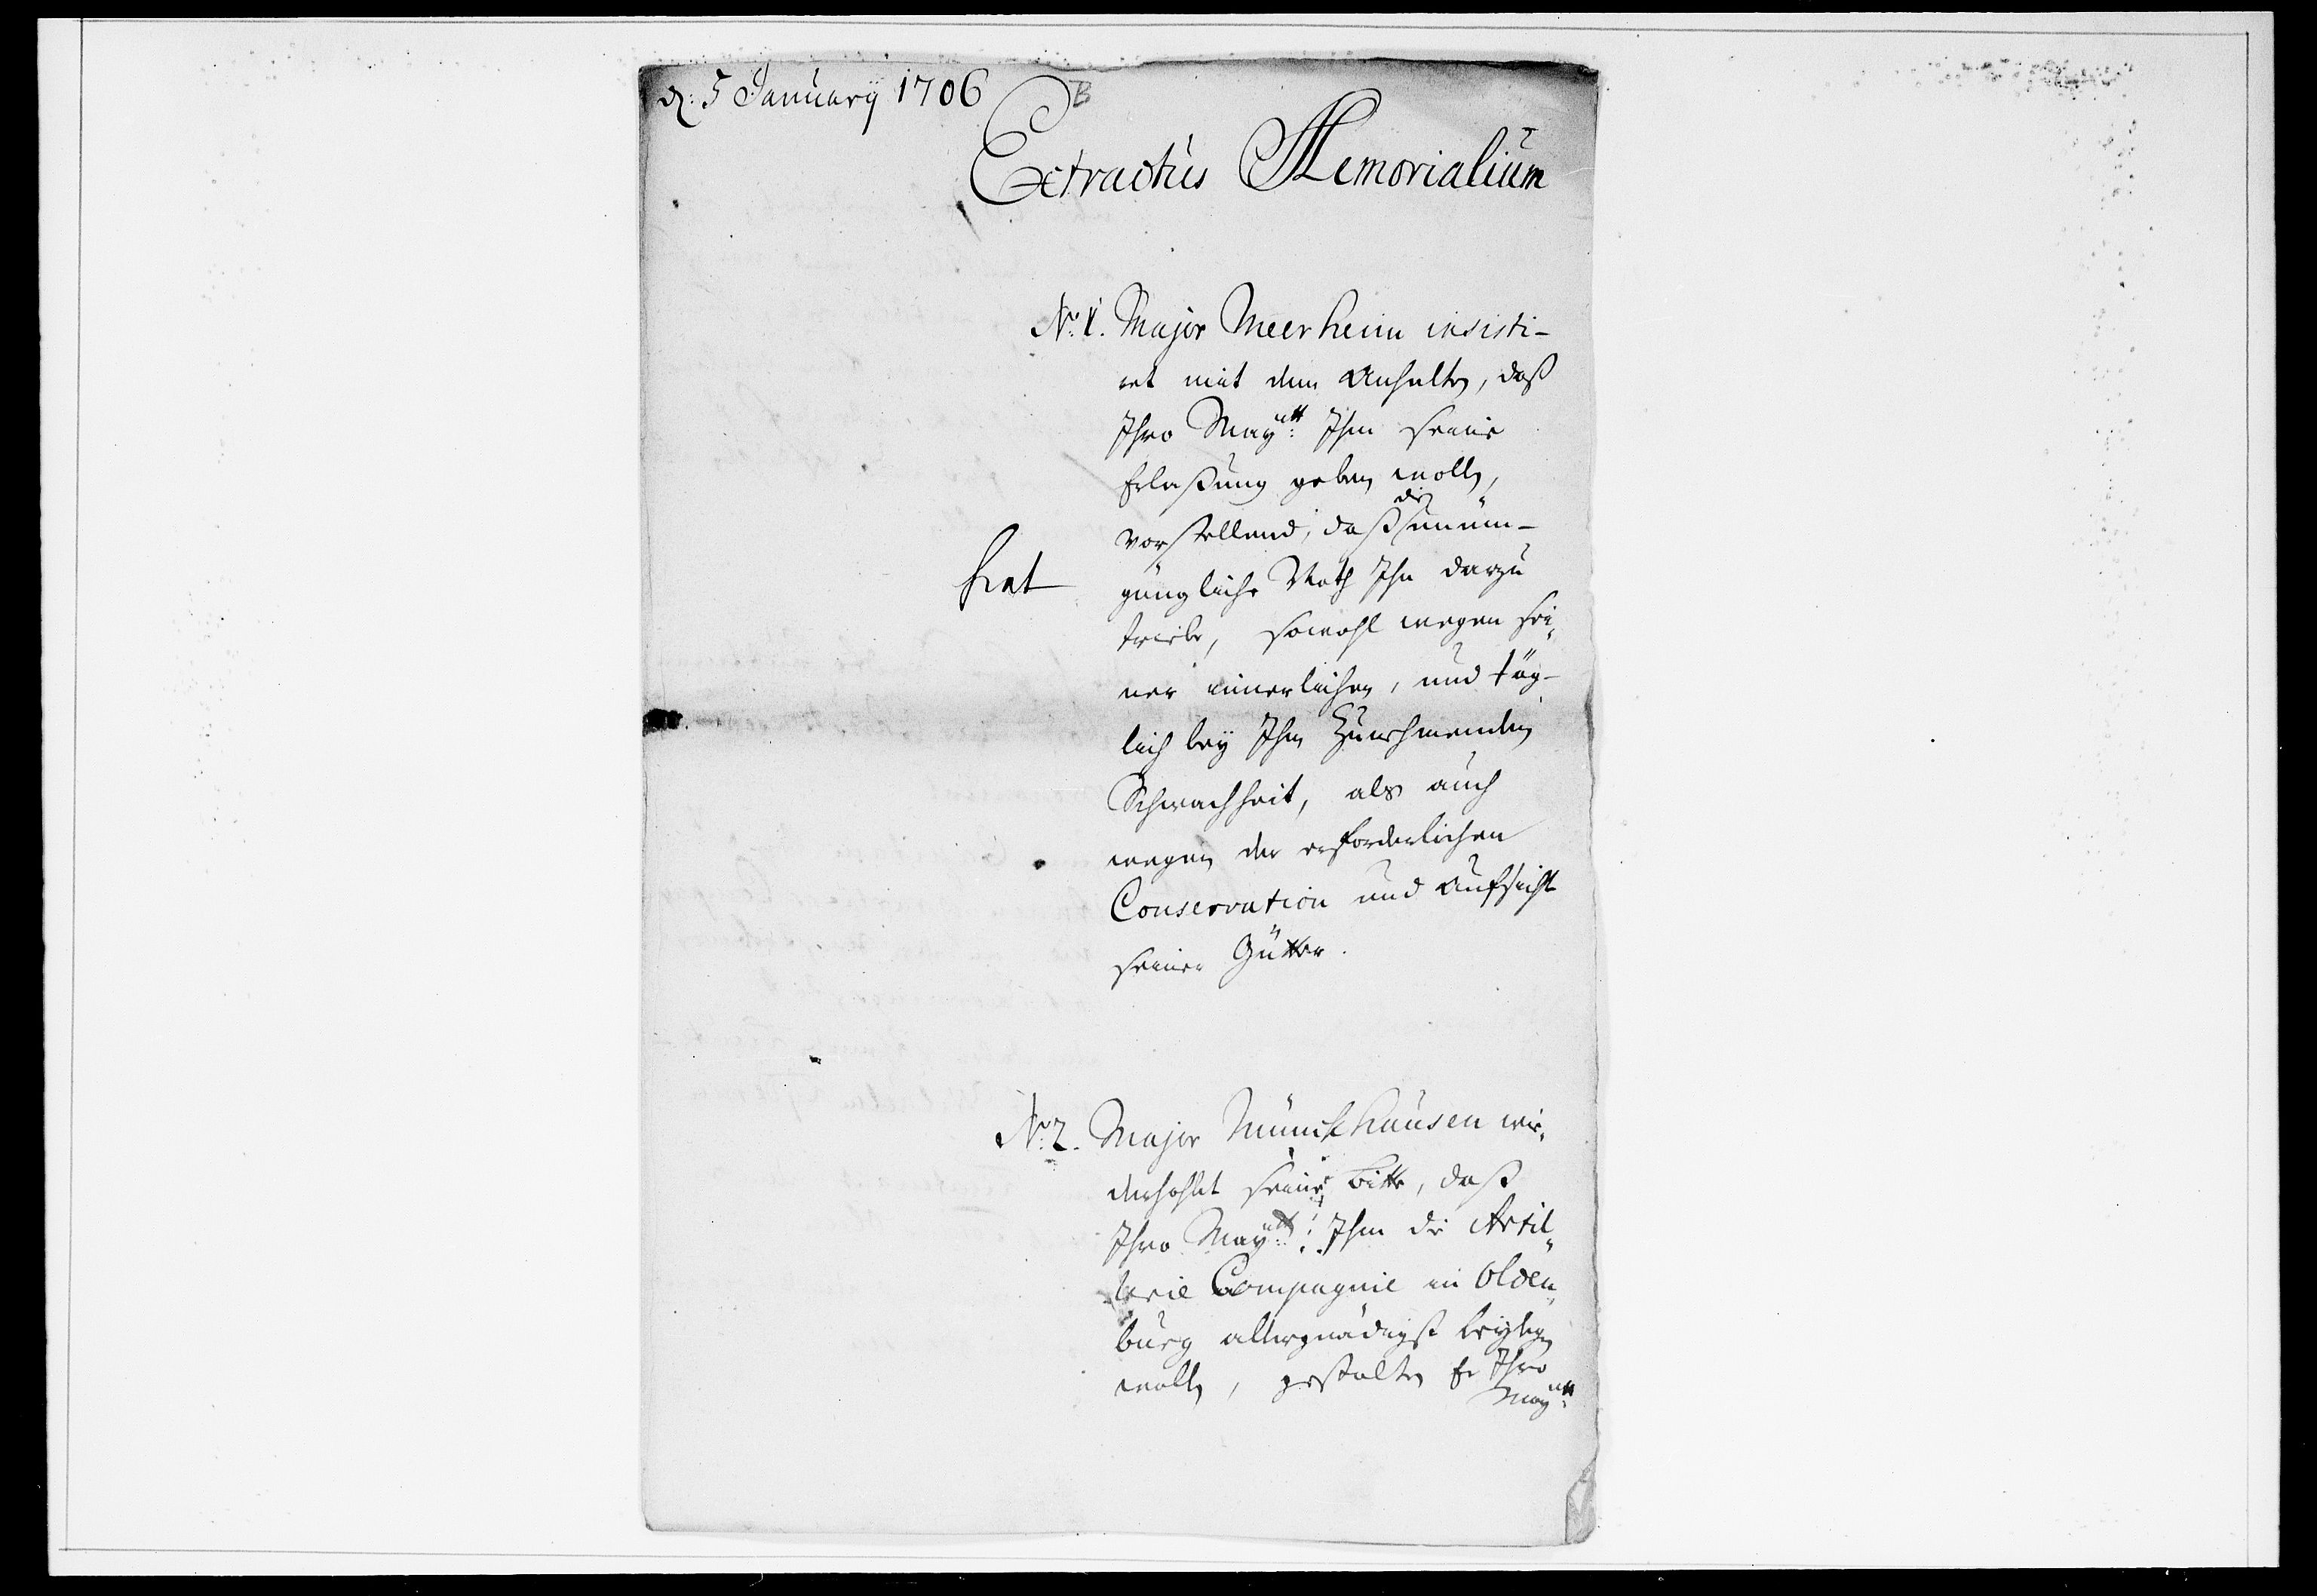 d: 5 January 1706
B
Extractus Memorialium
No. 1. Major Meerheim insisti-
ret mit dem Anhalten, daß
Ihro Maytt: Ihm seine
Erlaßung geben wolle,
vorstellend, daß die unüm-
gängliche Noth Ihn darzu
triebe, sowohl wegen sei-
ner innerlichen, und täg-
lich bey Ihm zunehmenden
Schwachheit, als auch
wegen der erforderlichen
Conservation und Aufsicht
seiner Gütter.
fiat
No. 2. Major Münchhausen wie-
derhohlet seine Bitte, daß
Ihro Maytt: Ihm die Artil-
lerie Compagnie in Olden-
burg allergnädigst beylegen
wolle, gestalten Er Ihro
Maytt: